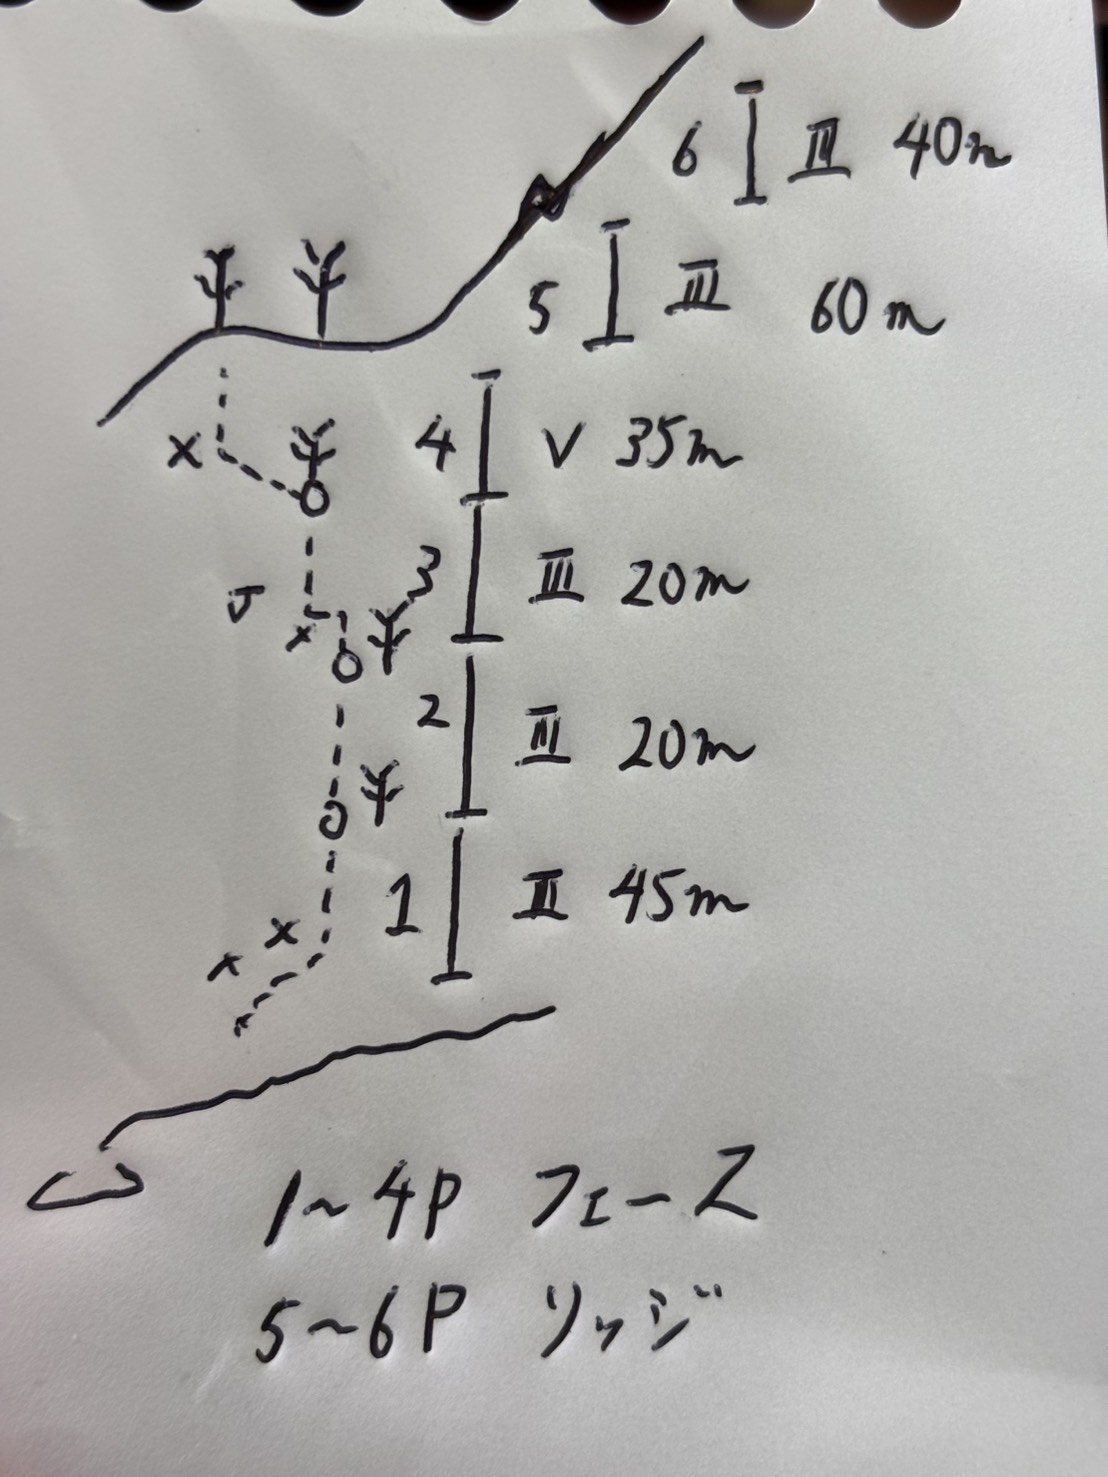 6 III 40m
5 III 60m
4 V 35m
3 III 20m
2 III 20m
1 II 45m
1~4P フェース
5~6P リッジ